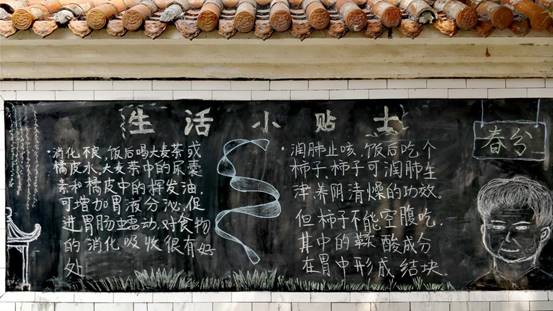 生活小贴士
春分
·消化不良,饭后喝大麦茶或
橘皮水,大麦茶中的尿囊
素和橘皮中的挥发油,
可增加胃液分泌,促
进胃肠蠕动,对食物
的消化吸收很有好
处
·润肺止咳,饭后吃个
柿子,柿子可润肺生
津养阴清燥的功效,
但柿子不能空腹吃,
其中的鞣酸成分
在胃中形成结块.